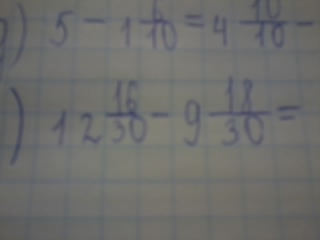 ) 5 - 1 6/10 = 4 10/10 -
) 12 16/30 - 9 18/30 =